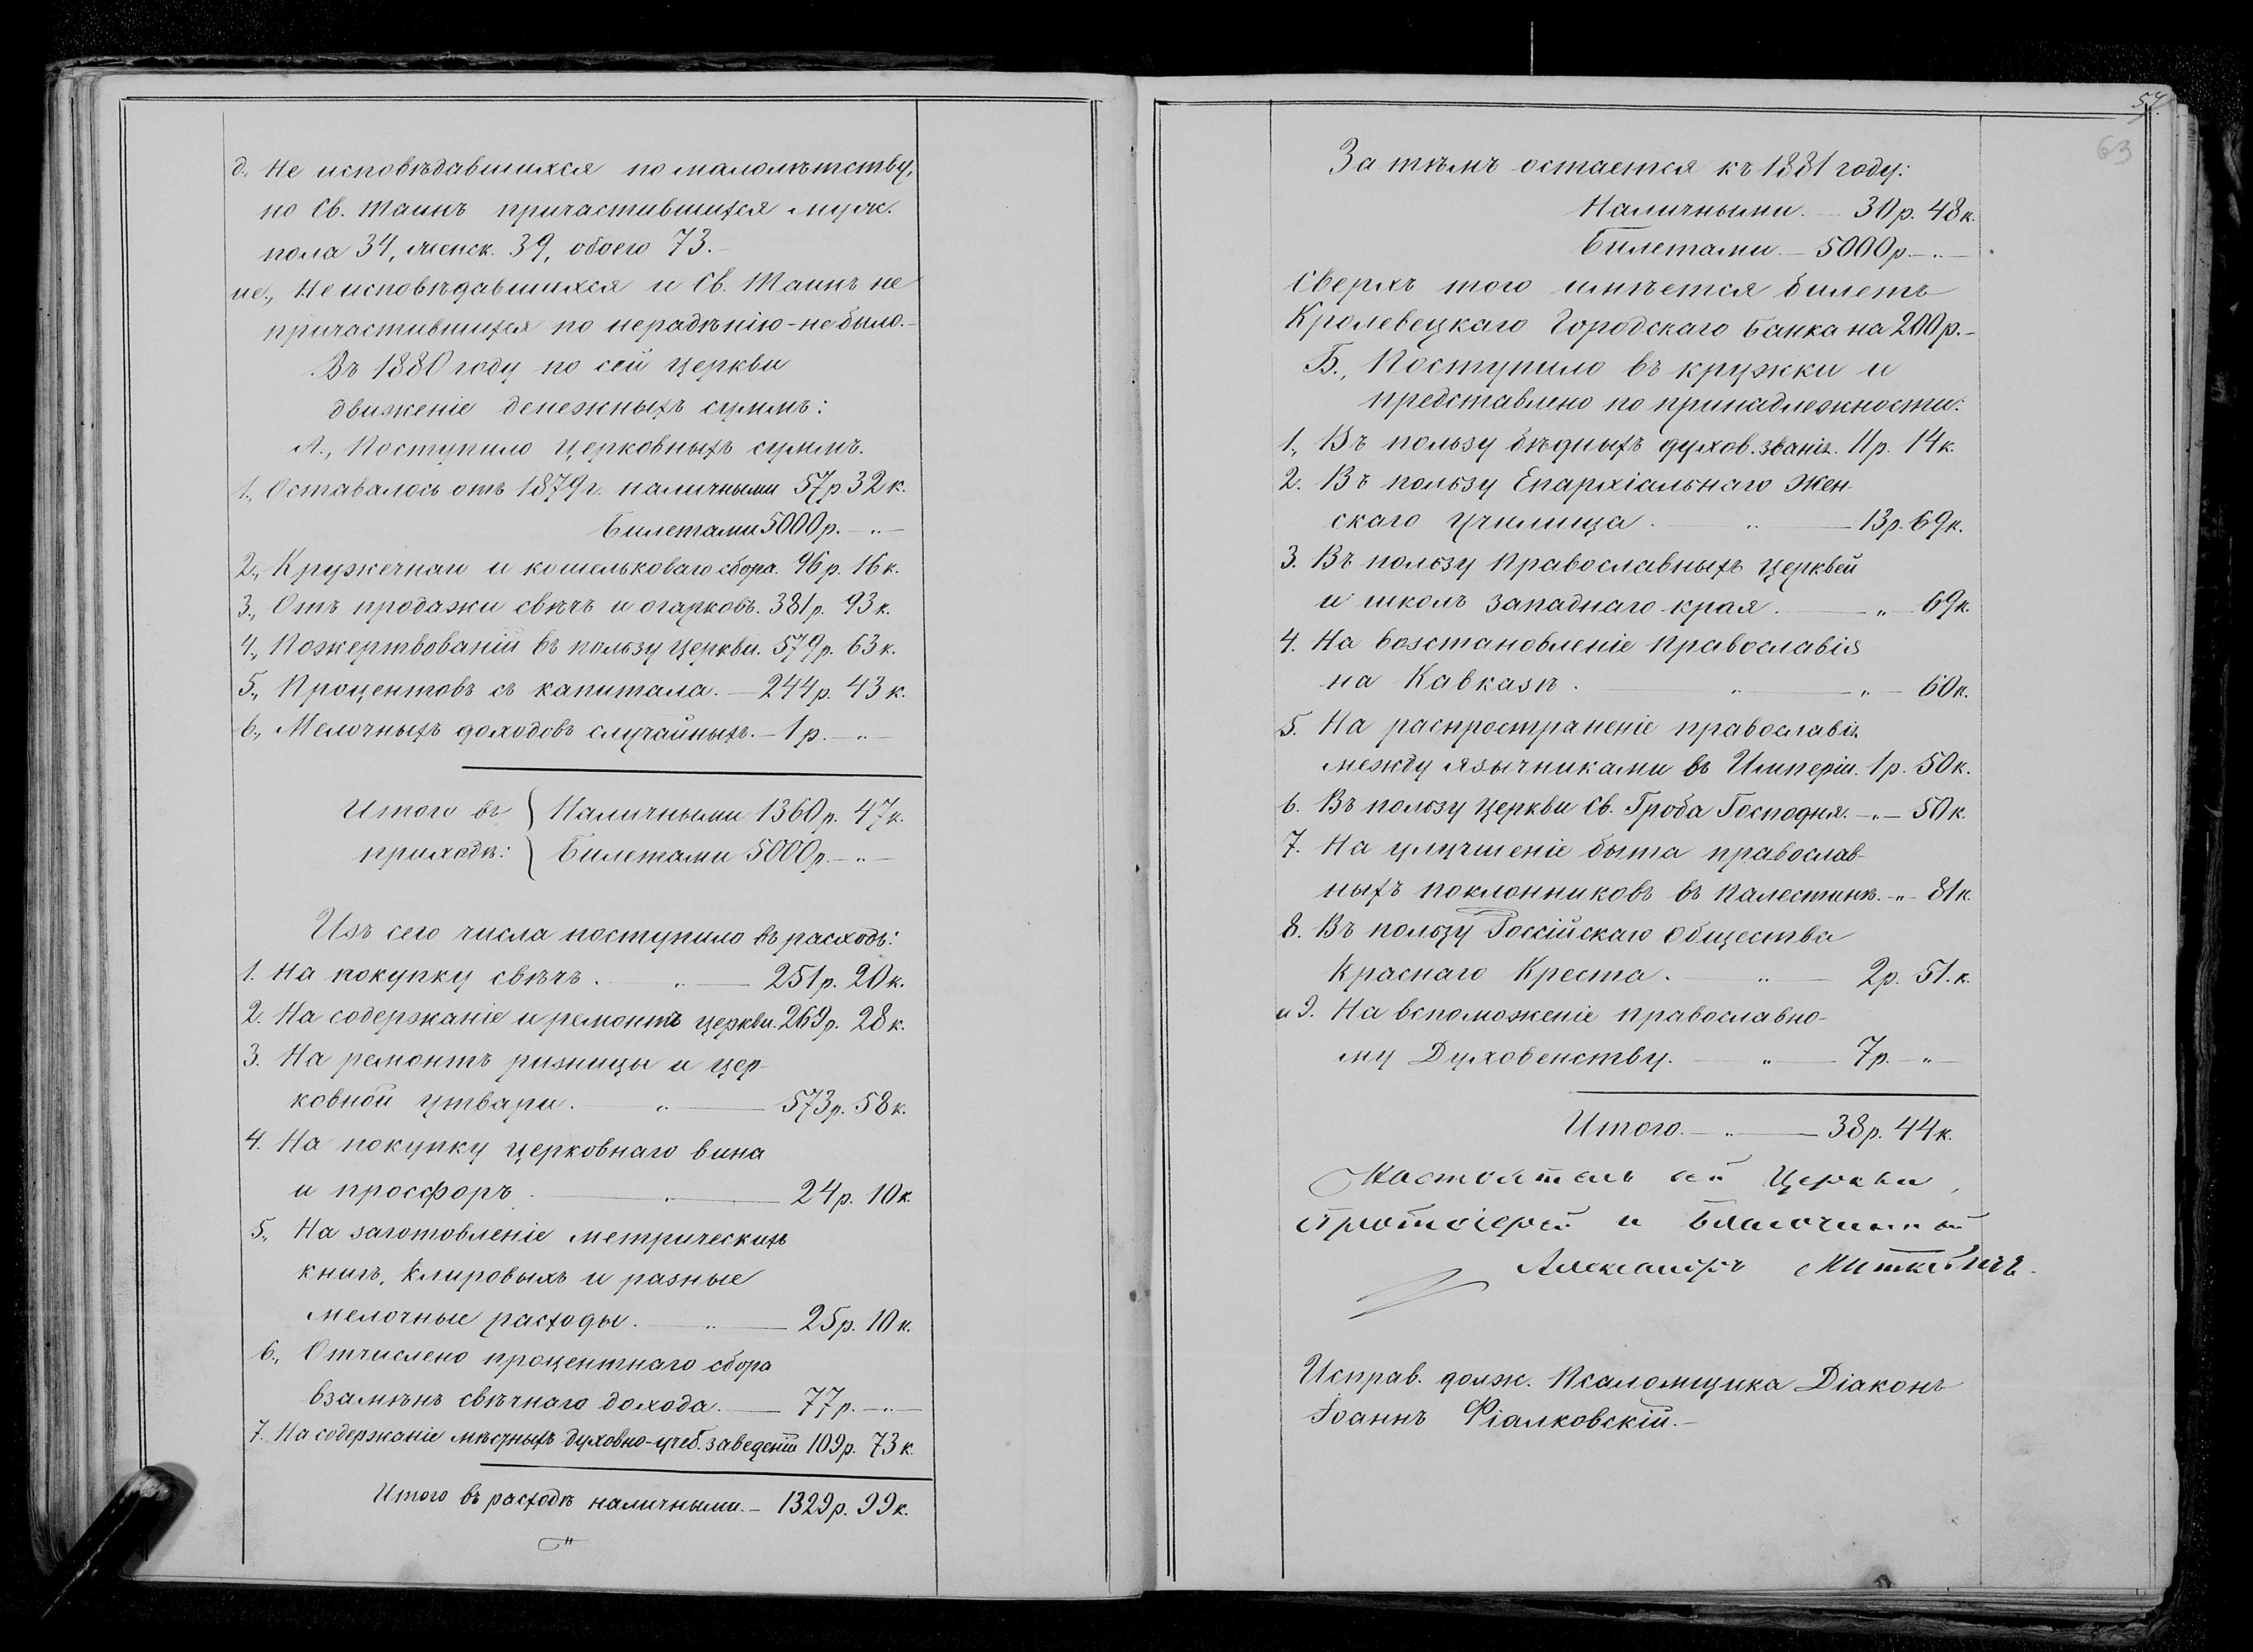 д., Не исповѣдавшихся по малолѣтству,
но Св. Таинъ причастившихся муж.
пола 34, женск. 39, обоего 73.-
ие., Не исповѣдавшихся и Св. Таинъ не
причастившихся по нерадѣнію - не было.-
Въ 1880 году по сей церкви
движеніе денежныхъ суммъ:
А., Поступило церковныхъ суммъ.
1., Оставалось отъ 1879 г. наличными 57 р. 32 к.
Билетами 5000 р. - „ -
2., Кружечнаго и кошельковаго сбора. 96 р. 16 к.
3., Отъ продажи свѣчъ и огарковъ. 381 р. 93 к.
4., Пожертвованій въ пользу церкви. 579 р. 63 к.
5., Процентовъ съ капитала. — 244 р. 43 к.
6., Мелочныхъ доходовъ случайныхъ. - 1 р. - „ -
Итого въ } Наличными 1360 р. 47 к.
приходѣ: } Билетами 5000 р. - „ -
Изъ сего числа поступило въ расходъ:
1. На покупку свѣчъ. — „ — 251 р. 20 к.
2. На содержаніе и ремонтъ церкви. 269 р. 28 к.
3. На ремонтъ ризницы и цер-
ковной утвари. — „ — 573 р. 58 к.
4. На покупку церковнаго вина
и просфоръ. — „ — 24 р. 10 к.
5., На заготовленіе метрическихъ
книгъ, клировыхъ и разные
мелочные расходы. — „ — 25 р. 10 к.
6., Отчислено процентнаго сбора
взамѣнъ свѣчнаго дохода. — 77 р. - „ -
7. На содержаніе мѣстныхъ духовно-учеб. заведеній 109 р. 73 к.
Итого въ расходѣ наличными. - 1329 р. 99 к.
57.
63
За тѣмъ остается къ 1881 году:
Наличными. — 30 р. 48 к.
Билетами. — 5000 р. - „ -
Сверхъ того имѣется билетъ
Кролевецкаго Городскаго Банка на 200 р. -
Б., Поступило въ кружки и
представлено по принадлежности:
1., Въ пользу бѣдныхъ духов. званія. 11 р. 14 к.
2. Въ пользу Епархіальнаго Жен-
скаго училища. — „ — 13 р. 69 к.
3. Въ пользу Православныхъ церквей
и школъ западнаго края. — „ — 69 к.
4. На возстановленіе Православія
на Кавказѣ. — „ — „ — 60 к.
5. На распространеніе православія
между язычниками въ Имперіи. 1 р. 50 к.
6. Въ пользу церкви Св. Гроба Господня. - „ - 50 к.
7. На улучшеніе быта православ-
ныхъ поклонниковъ въ Палестинѣ. - „ - 81 к.
8. Въ пользу Россійскаго Общества
Краснаго Креста. — „ — 2 р. 51. к.
и 9. На вспоможеніе православно-
му Духовенству. — „ — 7 р. - „ -
Итого. - „ — 38 р. 44 к.
Настоятель сей Церкви,
Протоіерей и Благочинный
Александръ Миткевичъ.
Исправ. долж. Псаломщика Діаконъ
Іоаннъ Фіалковскій. -